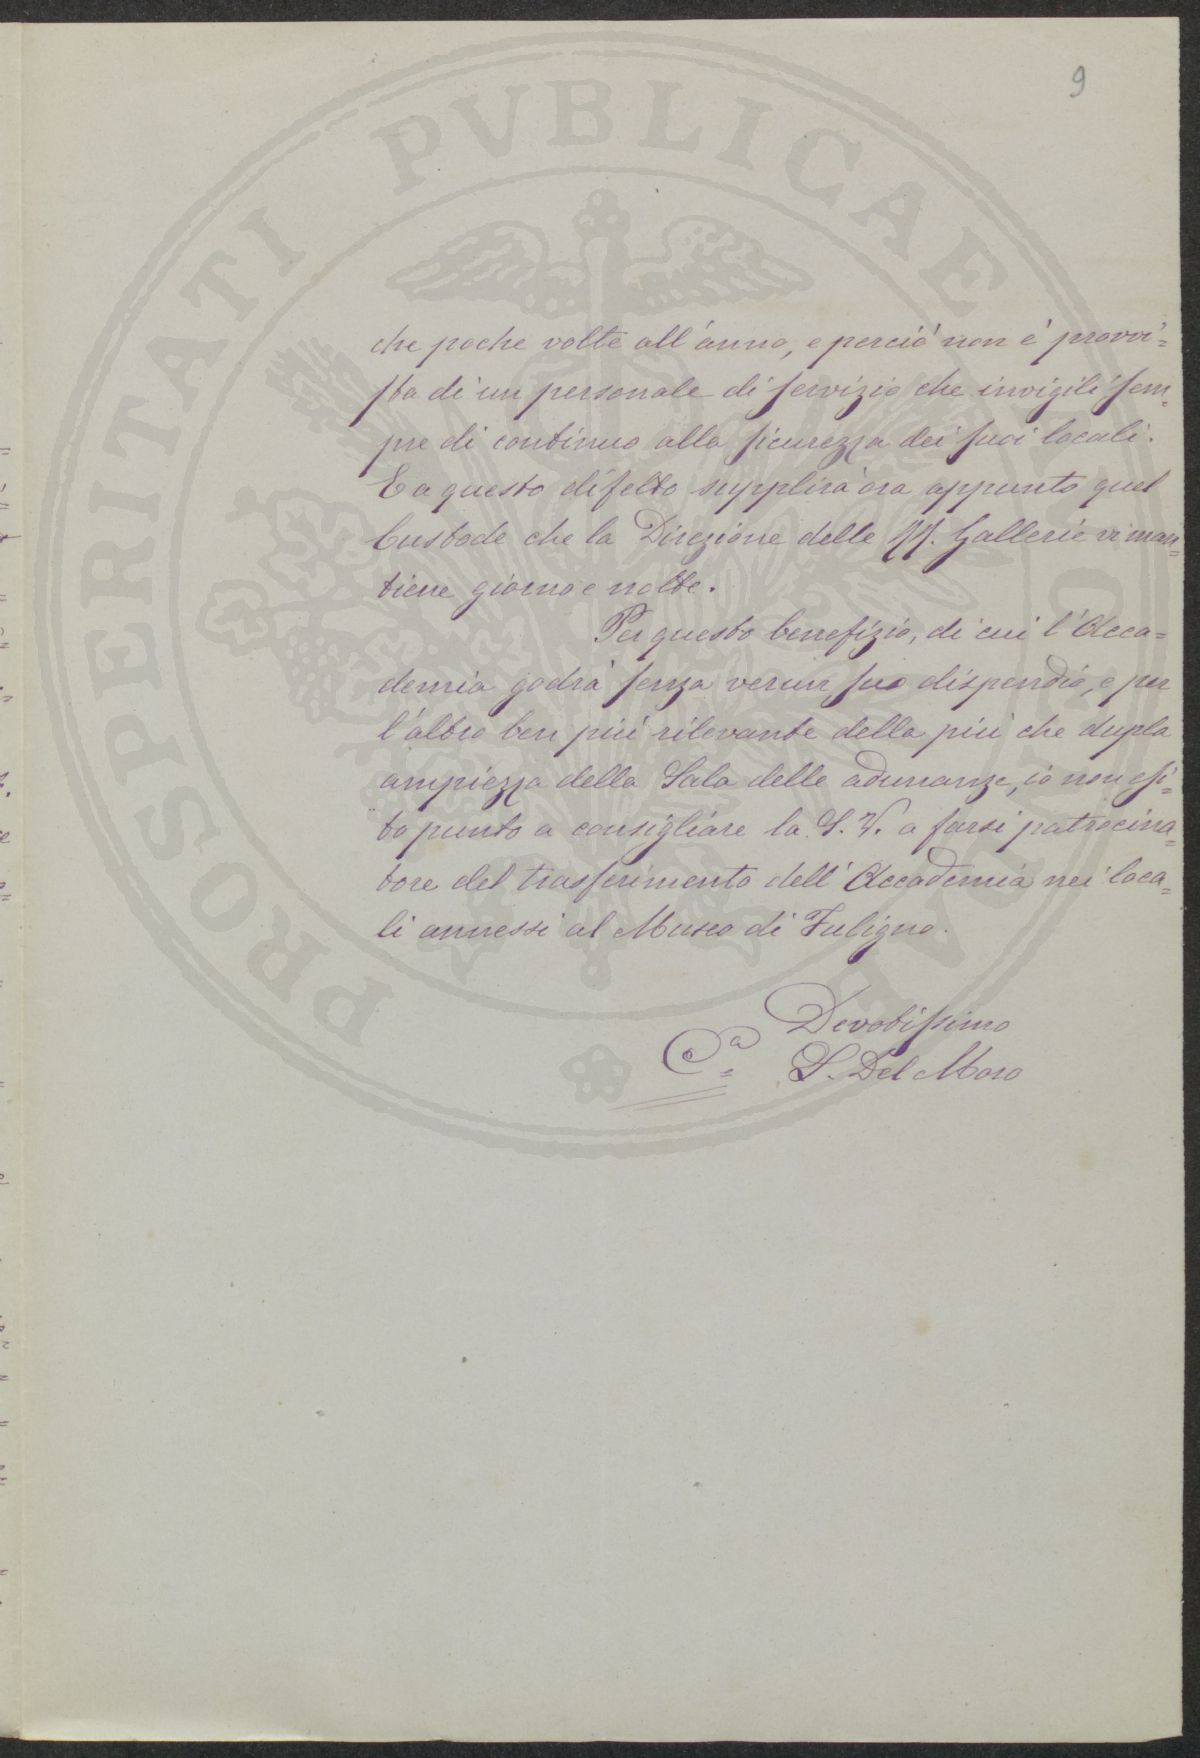 9
che poche volte all'anno, e perciò non è provvi=
sta di un personale di servizio che invigili sem=
pre di continuo alla sicurezza dei suoi locali.
E a questo difetto supplirà ora appunto quel
Custode che la Direzione delle RR. Gallerie vi man=
tiene giorno e notte.
Per questo benefizio, di cui l'Acca=
demia godrà senza verun suo dispendio, e per
l'altro ben più rilevante della più che dupla
ampiezza della Sala delle adunanze, io non esi=
to punto a consigliare la S. V. a farsi patrocina=
tore del trasferimento dell'Accademia nei loca=
li annessi al Museo di Fuligno.
Devotissimo
Ca= L. Del Moro
PROSPERITATI PVBLICAE